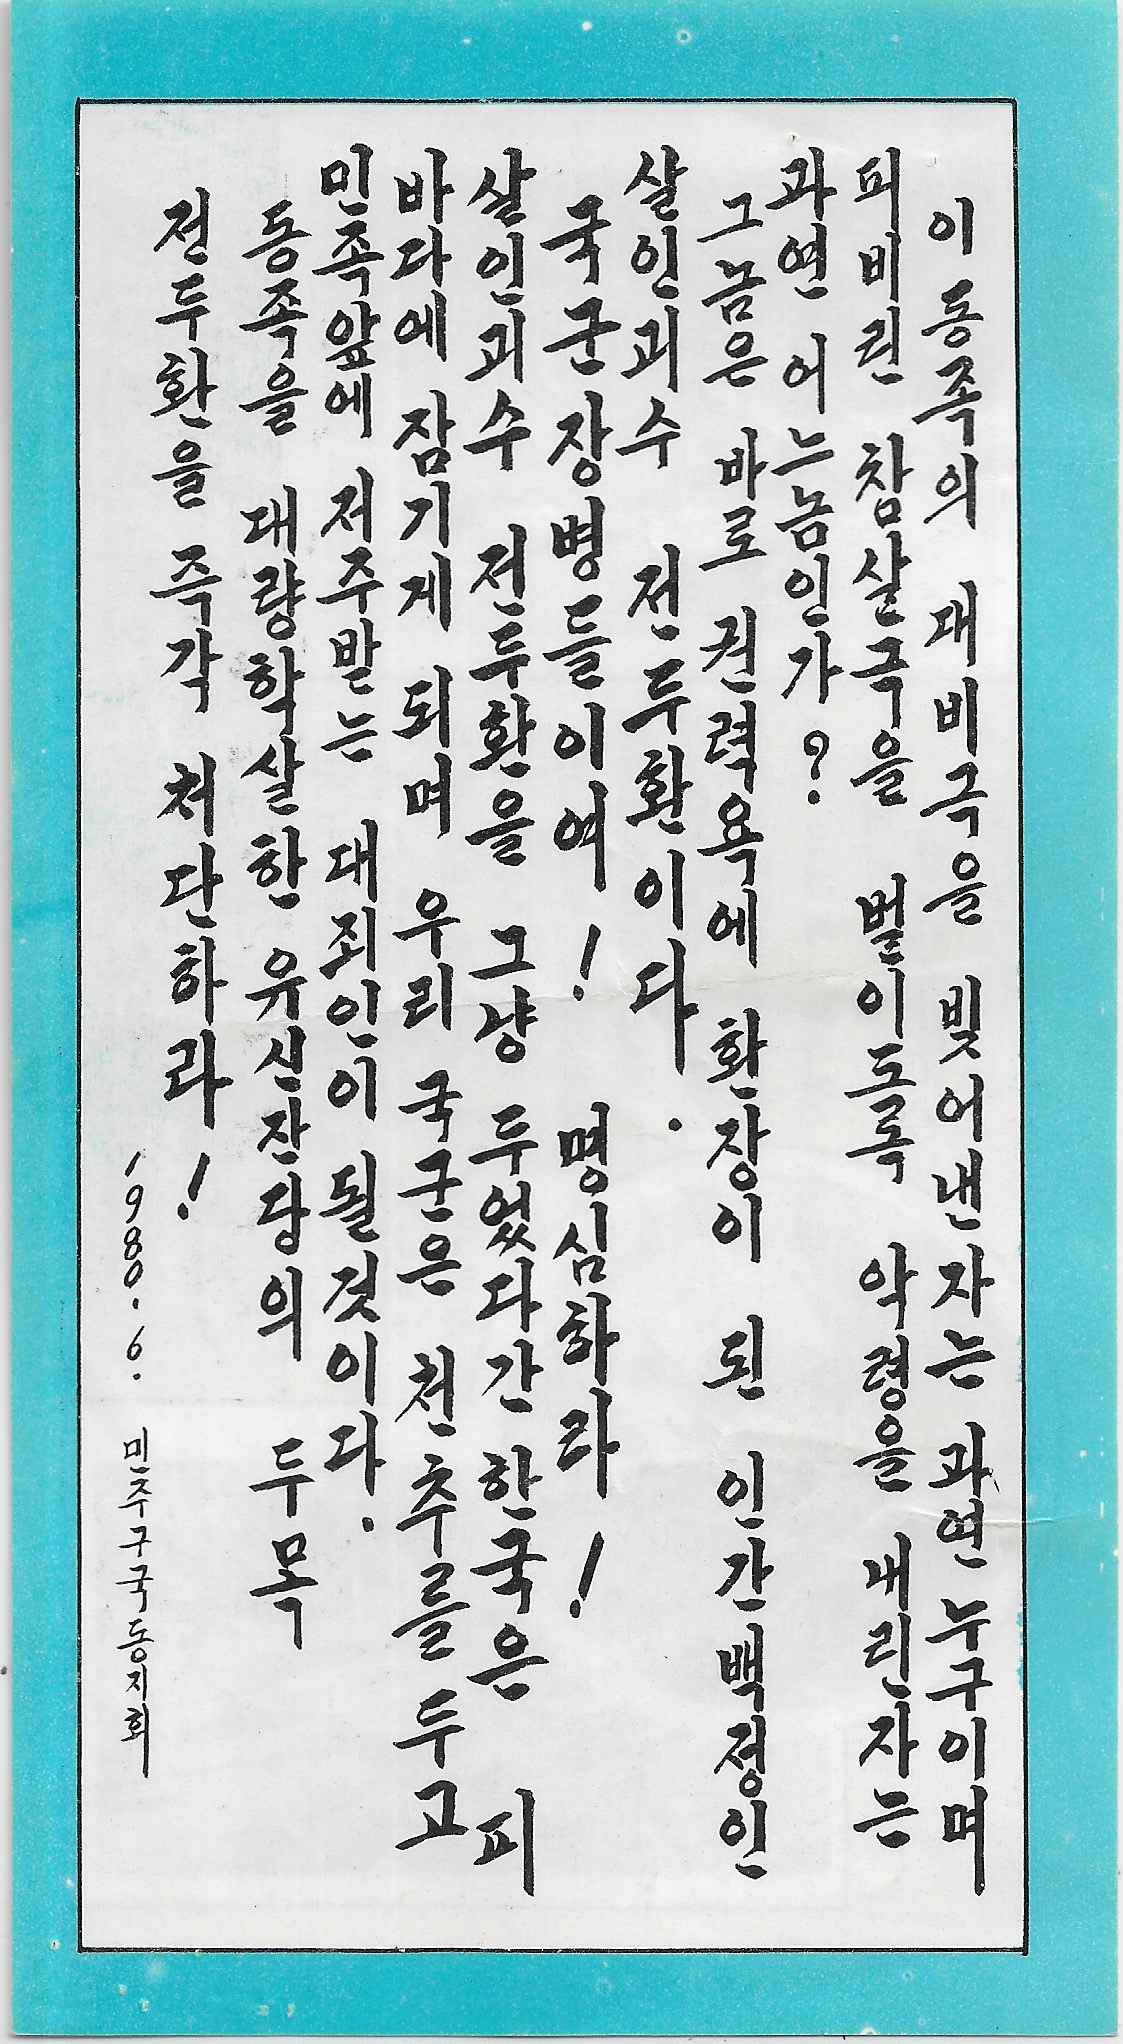 이 동족의 대비극을 빚어낸자는 과연 누구이며
피비린 참살극을 벌이도록 악령을 내린자는
과연 어느놈인가?
그놈은 바로 권력욕에 환장이 된 인간백정인
살인괴수 전두환이다.
국군장병들이여! 명심하라!
살인괴수 전두환을 그냥 두었다간 한국은 피
바다에 잠기게 되며 우리 국군은 천추를 두고
민족앞에 저주받는 대죄인이 될것이다.
동족을 대량학살한 유신잔당의 두목
전두환을 즉각 처단하라!
1980. 6. 민주구국동지회